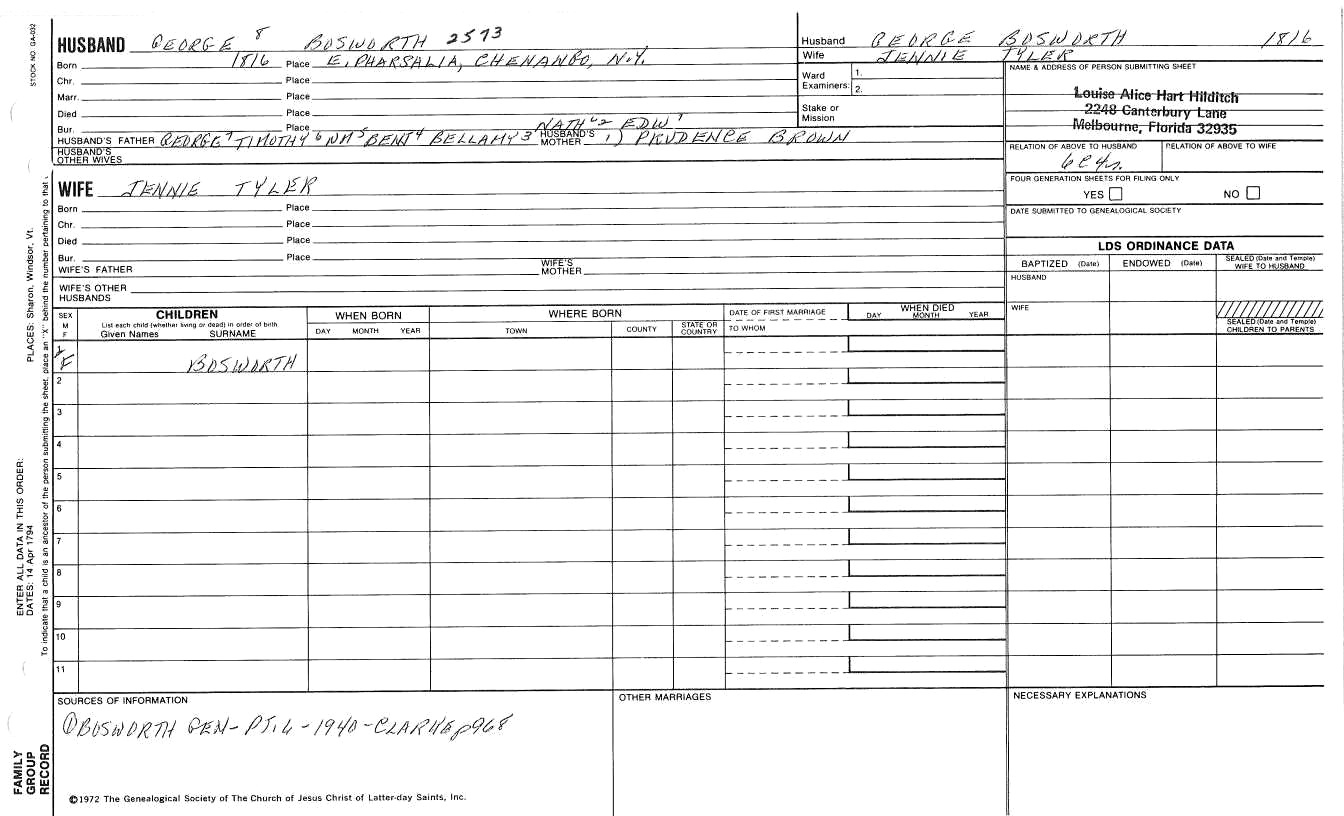 STOCK NO. GA-032
HUSBAND GEORGE 8 BOSWORTH 2573
Born 1816 Place E. PHARSALIA, CHENANGO, N.Y.
Chr. Place
Marr. Place
Died Place
Bur. Place
NATH'L 2 EDW 1
HUSBAND'S FATHER GEORGE 7 TIMOTHY 6 NM 5 BENJ 4 BELLAMY 3 HUSBAND'S MOTHER 1) PRUDENCE BROWN
HUSBAND'S OTHER WIVES
Husband GEORGE BOSWORTH 1816
Wife JENNIE TYLER
Ward Examiners: 1.
2.
Stake or Mission
NAME & ADDRESS OF PERSON SUBMITTING SHEET
Louise Alice Hart Hilditch
2248 Canterbury Lane
Melbourne, Florida 32935
RELATION OF ABOVE TO HUSBAND RELATION OF ABOVE TO WIFE
6C4r.
FOUR GENERATION SHEETS FOR FILING ONLY
YES NO
DATE SUBMITTED TO GENEALOGICAL SOCIETY
WIFE JENNIE TYLER
Born Place
Chr. Place
Died Place
Bur. Place
WIFE'S FATHER WIFE'S MOTHER
WIFE'S OTHER HUSBANDS
LDS ORDINANCE DATA
BAPTIZED (Date) ENDOWED (Date) SEALED (Date and Temple) WIFE TO HUSBAND
HUSBAND
WIFE
SEALED (Date and Temple) CHILDREN TO PARENTS
SEX M F
CHILDREN
List each child (whether living or dead) in order of birth
Given Names SURNAME
WHEN BORN
DAY MONTH YEAR
WHERE BORN
TOWN COUNTY STATE OR COUNTRY
DATE OF FIRST MARRIAGE
TO WHOM
WHEN DIED
DAY MONTH YEAR
1 F BOSWORTH
2
3
4
5
6
7
8
9
10
11
SOURCES OF INFORMATION
① BOSWORTH GEN- PT. 6 - 1940 - CLARKE p968
OTHER MARRIAGES
NECESSARY EXPLANATIONS
©1972 The Genealogical Society of The Church of Jesus Christ of Latter-day Saints, Inc.
FAMILY GROUP RECORD
ENTER ALL DATA IN THIS ORDER:
DATES: 14 Apr 1794
PLACES: Sharon, Windsor, Vt.
To indicate that a child is an ancestor of the person submitting the sheet, place an "X" behind the number pertaining to that